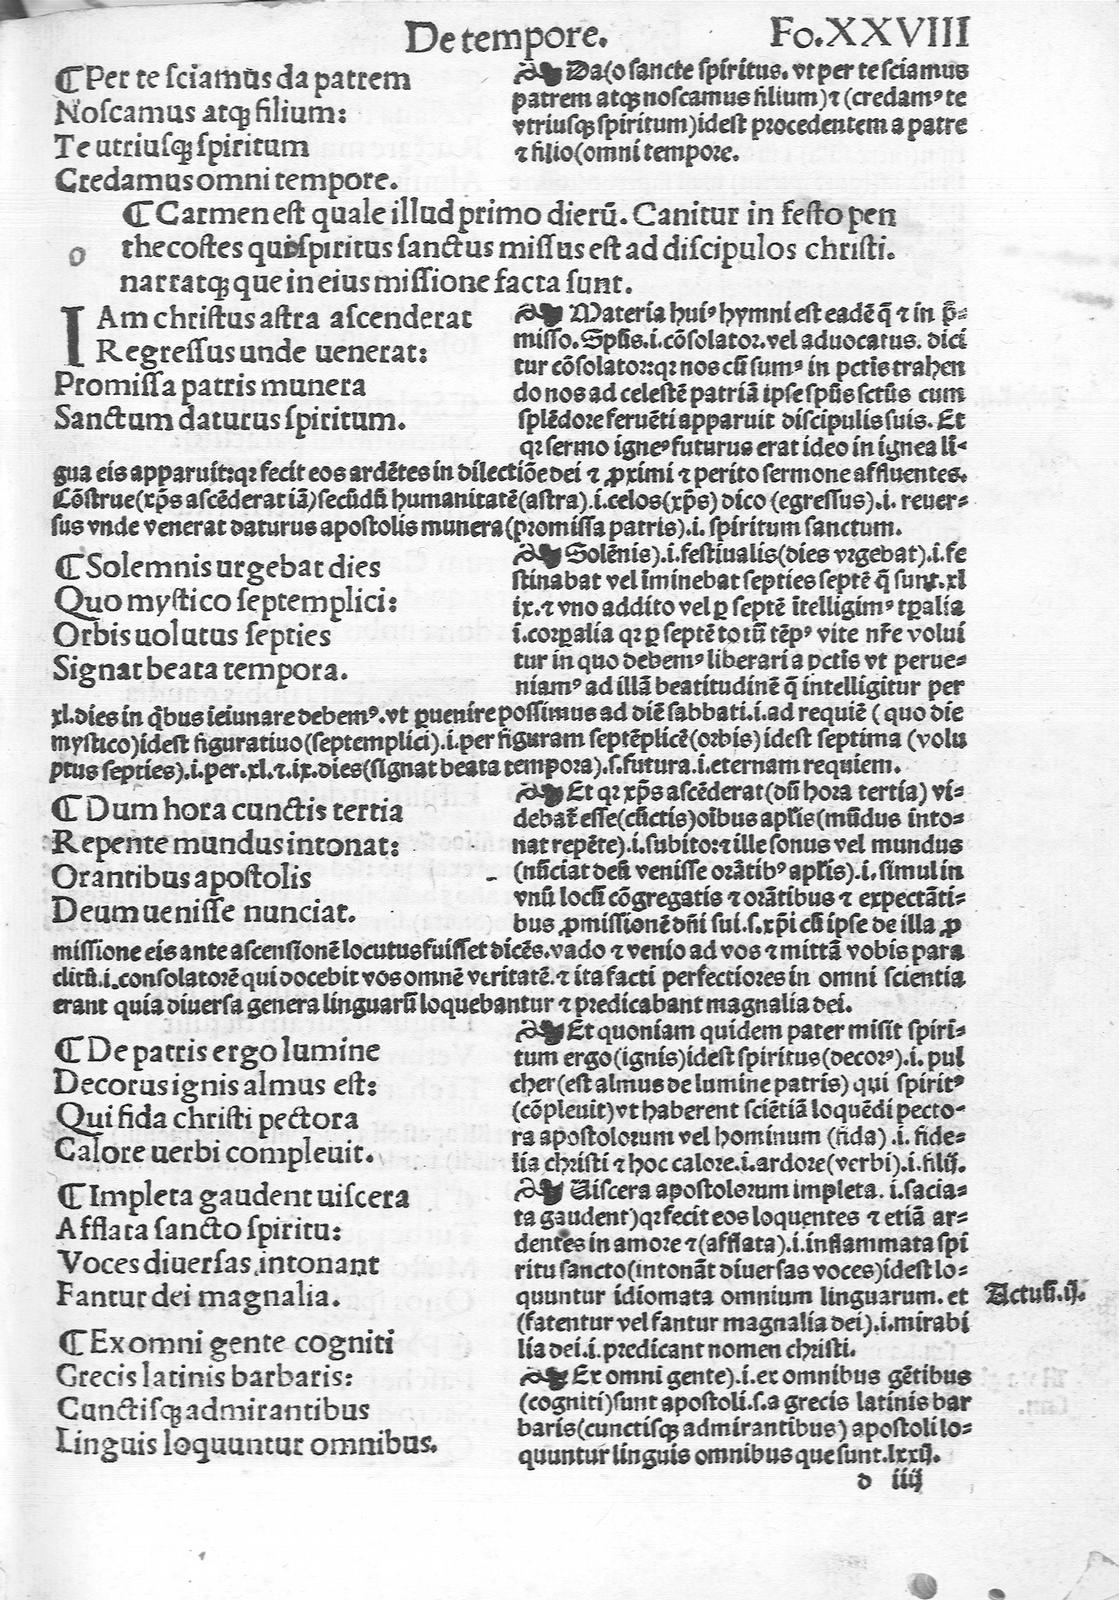 De tempore. Fo.XXVIII
¶ Per te sciamus da patrem
Noscamus atqꝫ filium:
Te utriusqꝫ spiritum
Credamus omni tempore.
Da(o sancte spiritus. vt per te sciamus
patrem atqꝫ noscamus filium)⁊ (credamꝰ te
vtriusqꝫ spiritum)idest procedentem a patre
⁊ filio(omni tempore.
¶ Carmen est quale illud primo dierū. Canitur in festo pen
thecostes quo spiritus sanctus missus est ad discipulos christi.
narratqꝫ que in eius missione facta sunt.
IAm christus astra ascenderat
Regressus unde uenerat:
Promissa patris munera
Sanctum daturus spiritum.
Materia huiꝰ hymni est eadē q̄ ⁊ in p̄-
misso. Spūs.i.cōsolator. vel aduocatus. dici
tur cōsolator:qꝛ nos cū sumꝰ in pctīs trahen
do nos ad celestē patriā ipse spūs sctūs cum
splēdore feruēti apparuit discipulis suis. Et
qꝛ sermo igneꝰ futurus erat ideo in ignea li-
gua eis apparuit:qꝛ fecit eos ardētes in dilectiōe dei ⁊ ꝓximi ⁊ perito sermone affluentes.
Cōstrue(xp̄s ascēderat iā)secūdū humanitatē(astra).i.celos(xp̄s) dico (egressus).i. reuer-
sus vnde venerat daturus apostolis munera(promissa patris).i. spiritum sanctum.
¶ Solemnis urgebat dies
Quo mystico septemplici:
Orbis uolutus septies
Signat beata tempora.
Solēnis).i.festiualis(dies vrgebat).i.fe
stinabat vel īminebat septies septē q̄ sunt.xl
ix.⁊ vno addito vel ꝑ septē ītelligimꝰ tꝑalia
i.corꝑalia qꝛ ꝑ septē totū tēpꝰ vite nr̄e volui
tur in quo debemꝰ liberari a pctīs vt perue-
niamꝰ ad illā beatitudinē q̄ intelligitur per
xl.dies in q̇bus ieiunare debemꝰ. vt ꝑuenire possimus ad diē sabbati.i.ad requiē ( quo die
mystico)idest figuratiuo(septemplici).i.per figuram septēplicē(orbis) idest septima (volu
ptus septies).i.per.xl.⁊.ix.dies(signat beata tempora).s.futura.i.eternam requiem.
¶ Dum hora cunctis tertia
Repente mundus intonat:
Orantibus apostolis
Deum uenisse nunciat.
Et qꝛ xp̄s ascēderat(dū hora tertia) vi-
debat̄ esse(cūctis)oībus apl̄is(mūdus into-
nat repēte).i.subito:⁊ ille sonus vel mundus
(nūciat deū venisse orātibꝰ apl̄is).i.simul in
vnū locū cōgregatis ⁊ orātibus ⁊ expectāti-
bus ꝓmissionē dn̄i sui.s.xp̄i cū ipse de illa ꝓ
missione eis ante ascensionē locutus fuisset dicēs. vado ⁊ venio ad vos ⁊ mittā vobis para
clitū.i.consolatorē qui docebit vos omnē veritatē.⁊ ita facti perfectiores in omni scientia
erant quia diuersa genera linguarū loquebantur ⁊ predicabant magnalia dei.
¶ De patris ergo lumine
Decorus ignis almus est:
Qui fida christi pectora
Calore uerbi compleuit.
Et quoniam quidem pater misit spiri-
tum ergo(ignis)idest spiritus(decorꝰ).i. pul
cher(est almus de lumine patris) qui spiritꝰ
(cōpleuit)vt haberent sciētiā loquēdi pecto-
ra apostolorum vel hominum (fida) .i. fide-
lia christi ⁊ hoc calore.i.ardore(verbi).i.filij.
¶ Impleta gaudent uiscera
Afflata sancto spiritu:
Voces diuersas intonant
Fantur dei magnalia.
Uiscera apostolorum impleta. i.sacia-
ta gaudent)qꝛ fecit eos loquentes ⁊ etiā ar-
dentes in amore ⁊(afflata).i.inflammata spi
ritu sancto(intonāt diuersas voces)idest lo-
quuntur idiomata omnium linguarum. et
(fatentur vel fantur magnalia dei).i.mirabi
lia dei.i.predicant nomen christi.
Actuū.ij.
¶ Ex omni gente cogniti
Grecis latinis barbaris:
Cunctisqꝫ admirantibus
Linguis loquuntur omnibus.
Ex omni gente).i.ex omnibus gētibus
(cogniti)sunt apostoli.s.a grecis latinis bar
baris(cunctisqꝫ admirantibus) apostoli lo-
quuntur linguis omnibus que sunt.lxxij.
d iiij